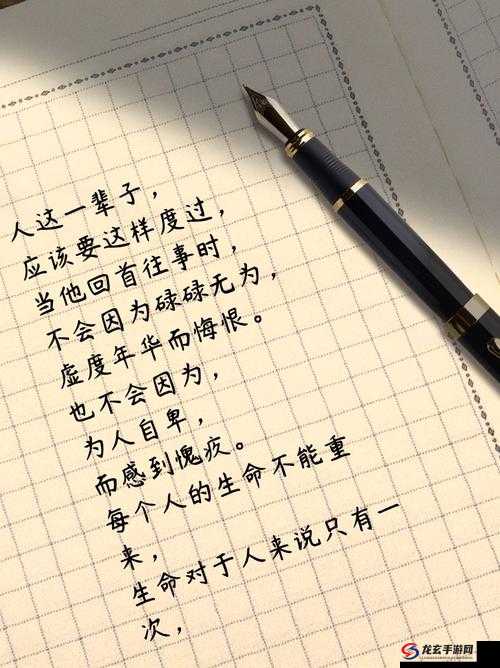 人这一辈子，
应该要这样度过，
当他回首往事时，
不会因为碌碌无为，
虚度年华而悔恨。
也不会因为，
为人自卑，
而感到愧疚。
每个人的生命不能重
来，
生命对于人来说只有一
次，
龙玄手游网